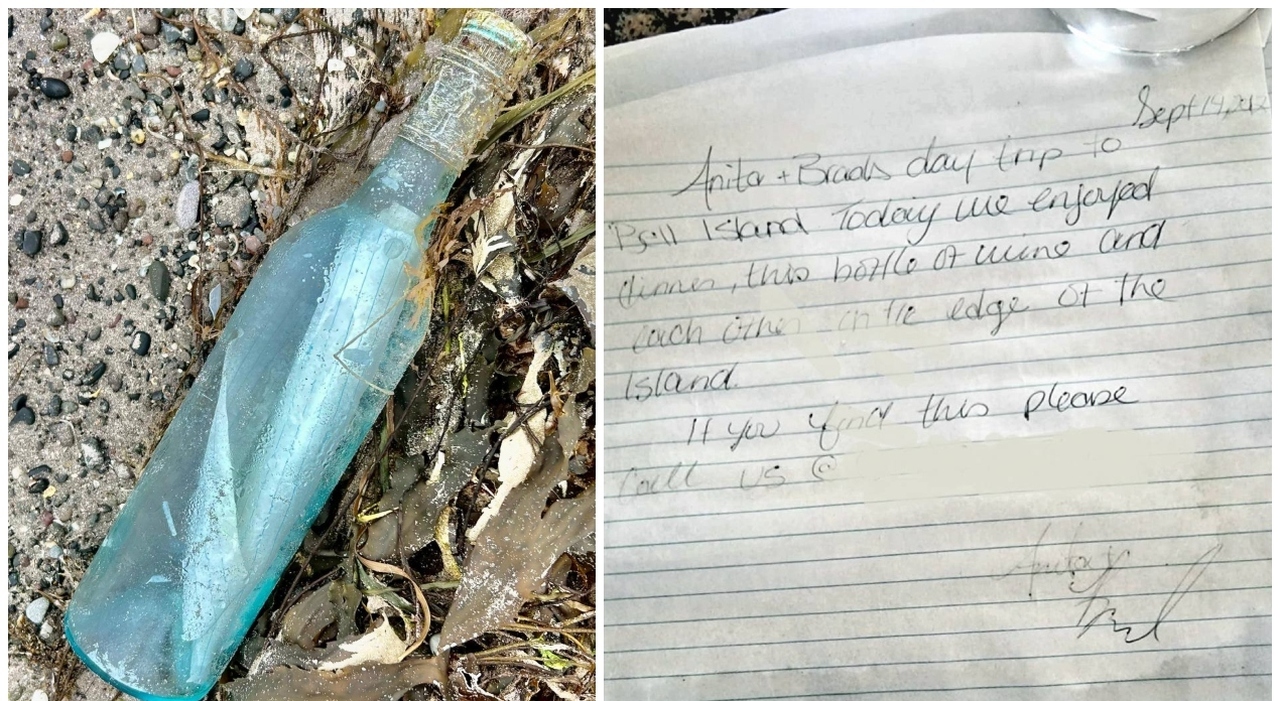 Sept 14, 2012
Anita + Brad's day trip to
Bell Island Today we enjoyed
dinner, this bottle of wine and
each other on the edge of the
Island.
If you find this please
Call us @
Anita &
Brad